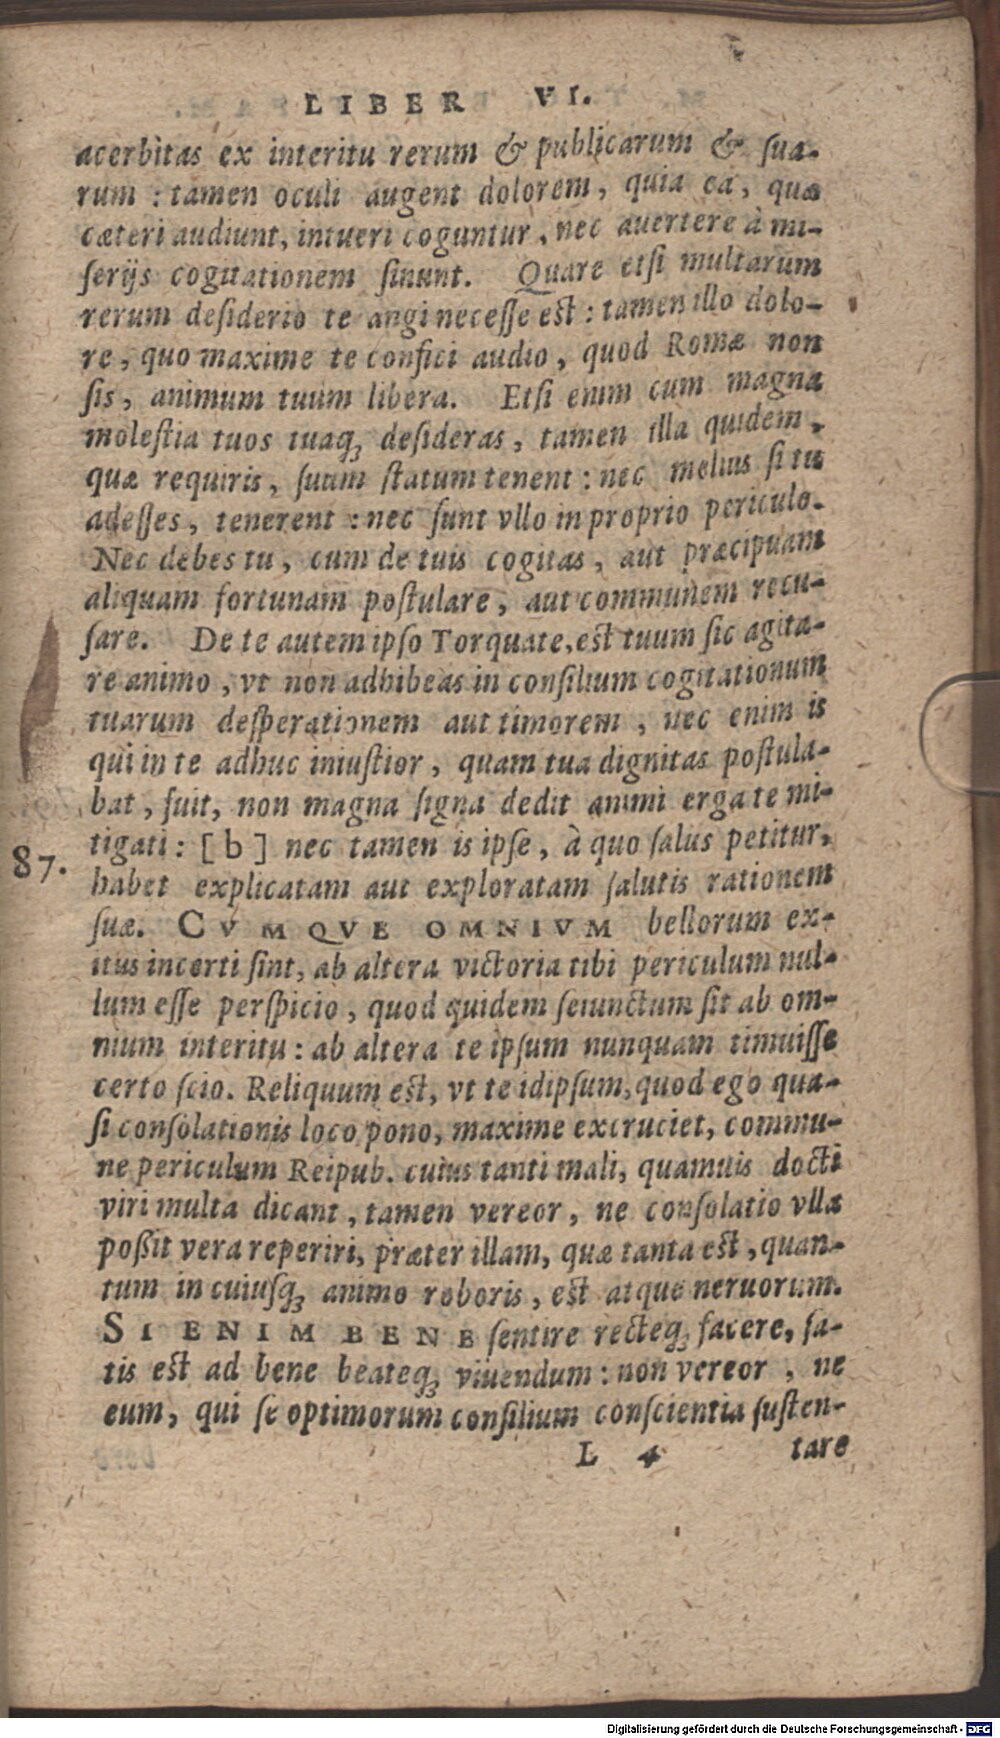 LIBER VI.
acerbitas ex interitu rerum & publicarum & ſua-
rum : tamen oculi augent dolorem, quia ea, quæ
cæteri audiunt, intueri coguntur, nec auertere à mi-
ſerijs cogitationem ſinunt. Quare etſi multarum
rerum deſiderio te angi neceſſe eſt : tamen illo dolo-
re, quo maxime te confici audio, quod Romæ non
ſis, animum tuum libera. Etſi enim cum magna
moleſtia tuos tuaq́; deſideras, tamen illa quidem,
quæ requiris, ſuum ſtatum tenent : nec melius ſi tu
adeſſes, tenerent : nec ſunt vllo in proprio periculo.
Nec debes tu, cum de tuis cogitas, aut præcipuam
aliquam fortunam poſtulare, aut communem recu-
ſare. De te autem ipſo Torquate, eſt tuum ſic agita-
re animo, vt non adhibeas in conſilium cogitationum
tuarum deſperationem aut timorem, nec enim is
qui in te adhuc iniuſtior, quam tua dignitas poſtula-
bat, fuit, non magna ſigna dedit animi erga te mi-
tigati : [b] nec tamen is ipſe, à quo ſalus petitur,
87.
habet explicatam aut exploratam ſalutis rationem
ſuæ. CVMQVE OMNIVM bellorum ex-
itus incerti ſint, ab altera victoria tibi periculum nul-
lum eſſe perſpicio, quod quidem ſeiunctum ſit ab om-
nium interitu : ab altera te ipſum nunquam timuiſſe
certo ſcio. Reliquum eſt, vt te idipſum, quod ego qua-
ſi conſolationis loco pono, maxime excruciet, commu-
ne periculum Reipub. cuius tanti mali, quamuis docti
viri multa dicant, tamen vereor, ne conſolatio vlla
poßit vera reperiri, præter illam, quæ tanta eſt, quan-
tum in cuiuſq́; animo roboris, eſt atque neruorum.
SI ENIM BENE ſentire recteq́; facere, ſa-
tis eſt ad bene beateq́; viuendum : non vereor, ne
eum, qui ſe optimorum conſilium conſcientia ſuſten-
L 4 tare
Digitalisierung gefördert durch die Deutsche Forschungsgemeinschaft - DFG